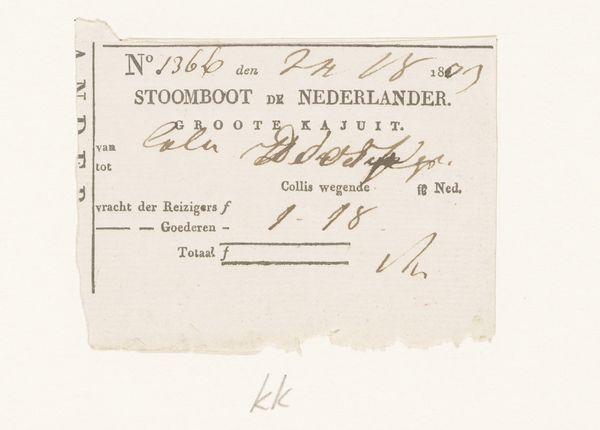 No 1366 den 24 18 18
STOOMBOOT DE NEDERLANDER.
GROOTE KAJUIT.
van
tot
Collis wegende ℔ Ned.
vracht der Reizigers f 1-18
— — Goederen -
Totaal f
kk